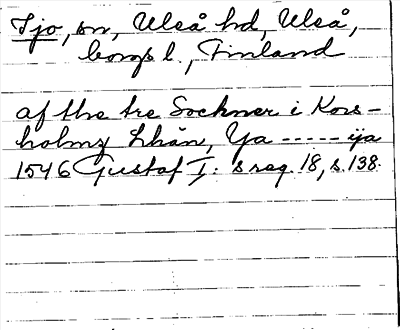 Ijo, sn, Uleå hd, Uleå,
borgsl., Finland
af the tre Sochner i Kors-
holmz Lhän, Ya ----- ija
1546 Gustaf I:s reg. 18, s. 138.